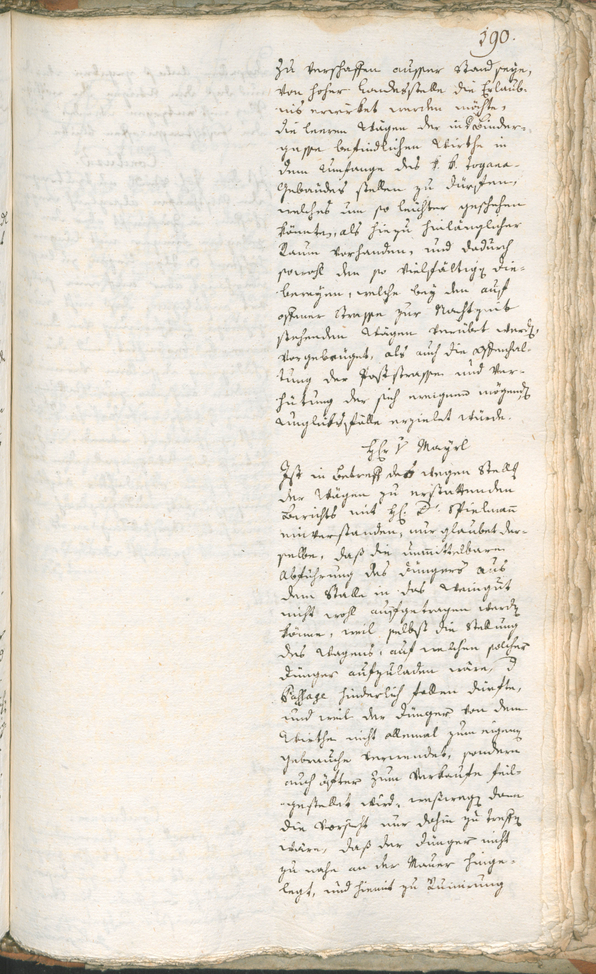 190.
zu verschaffen ausser Stand seye,
von hoher Landesstelle die Erlaub-
nis erwirket werden möchte,
die leeren Wägen der in Binder-
gasse befindlichen Wirthe in
dem Umfange des k. k.
Gebäudes stellen zu dürffen,
welches um so leichter geschehen
könnte, als hiezu hinlänglicher
Raum vorhanden, und dadurch
sowohl den so vielfältigen Die-
bereyen, welche bey den auf
offener Strasse zur Nachtzeit
stehenden Wägen verübet werden,
vorgebeuget, als auch die Offenhal-
tung der Poststrasse und Ver-
hütung der sich ereignen mögenden
Unglücksfälle erzielet würde.
Herr v Mayrl
Ist in Betreff des wegen Stellung
der Wägen zu erstattenden
Berichts mit H. D. Spielmann
einverstanden, nur glaubet der-
selbe, daß die unmittelbare
Abführung des Düngers aus
dem Stalle in das Weingut
nicht wohl aufgetragen werden
könne, weil selbst die Stellung
des Wagens, auf welchen solcher
Dünger aufzuladen wäre, der
Passage hinderlich fallen dürfte,
und weil der Dünger von dem
Wirthe nicht allemal zum eigenen
Gebrauche verwendet, sondern
auch öfter zum Verkaufe feil-
gestellet wird, weßwegen dann
die Vorsicht nur dahin zu treffen
wäre, daß der Dünger nicht
zu nahe an der Mauer hinge-
legt, und hiemit zu Ruinirung